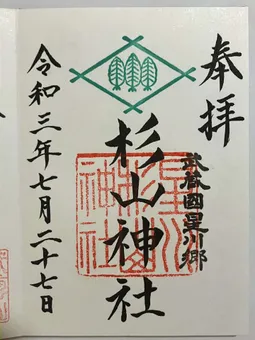 奉拝
武蔵國星川郷
杉山神社
令和三年七月二十七日